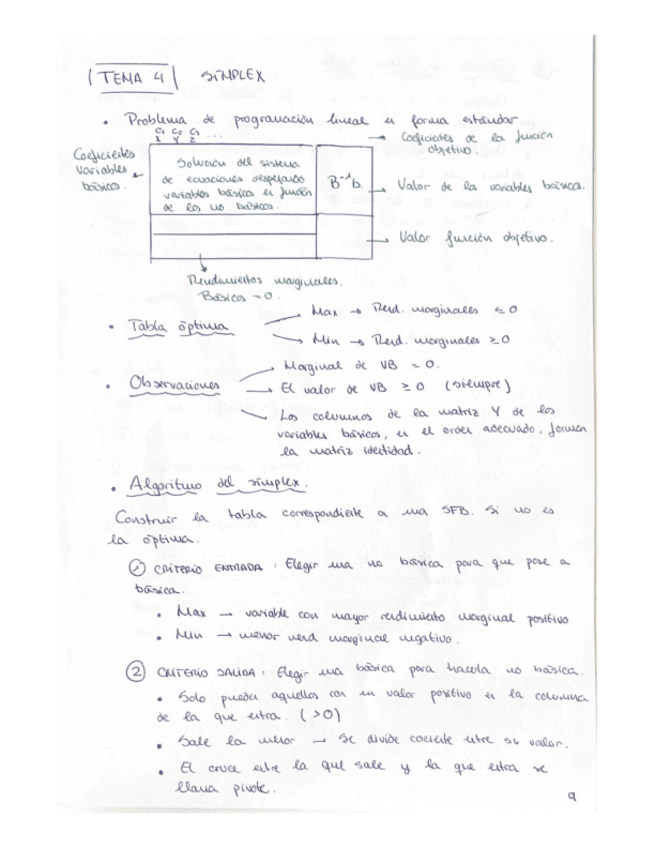 TEMA 4 SIMPLEX
• Problema de programación lineal en forma estándar
C1 C2 C3 ...
X Y Z
→ Coeficientes de la función
objetivo.
Coeficientes
variables
básicas.
Solución del sistema
de ecuaciones despejando
variables básicas en función
de las no básicas.
B⁻¹b
→ Valor de las variables básicas.
→ Valor función objetivo.
Rendimientos marginales.
Básicas = 0.
• Tabla óptima
Max → Rend. marginales ≤ 0
Min → Rend. marginales ≥ 0
• Observaciones
Marginal de VB = 0.
→ El valor de VB ≥ 0 (siempre)
Las columnas de la matriz Y de las
variables básicas, en el orden adecuado, forman
la matriz identidad.
• Algoritmo del simplex.
Construir la tabla correspondiente a una SFB. Si no es
la óptima.
① CRITERIO ENTRADA: Elegir una no básica para que pase a
básica.
• Max → variable con mayor rendimiento marginal positivo
• Min → menor rend marginal negativo.
② CRITERIO SALIDA: Elegir una básica para hacerla no básica.
• Solo pueden aquellas con un valor positivo en la columna
de la que entra. (>0)
• Sale la menor → Se divide cociente entre su valor.
• El cruce entre la que sale y la que entra se
llama pivote.
9